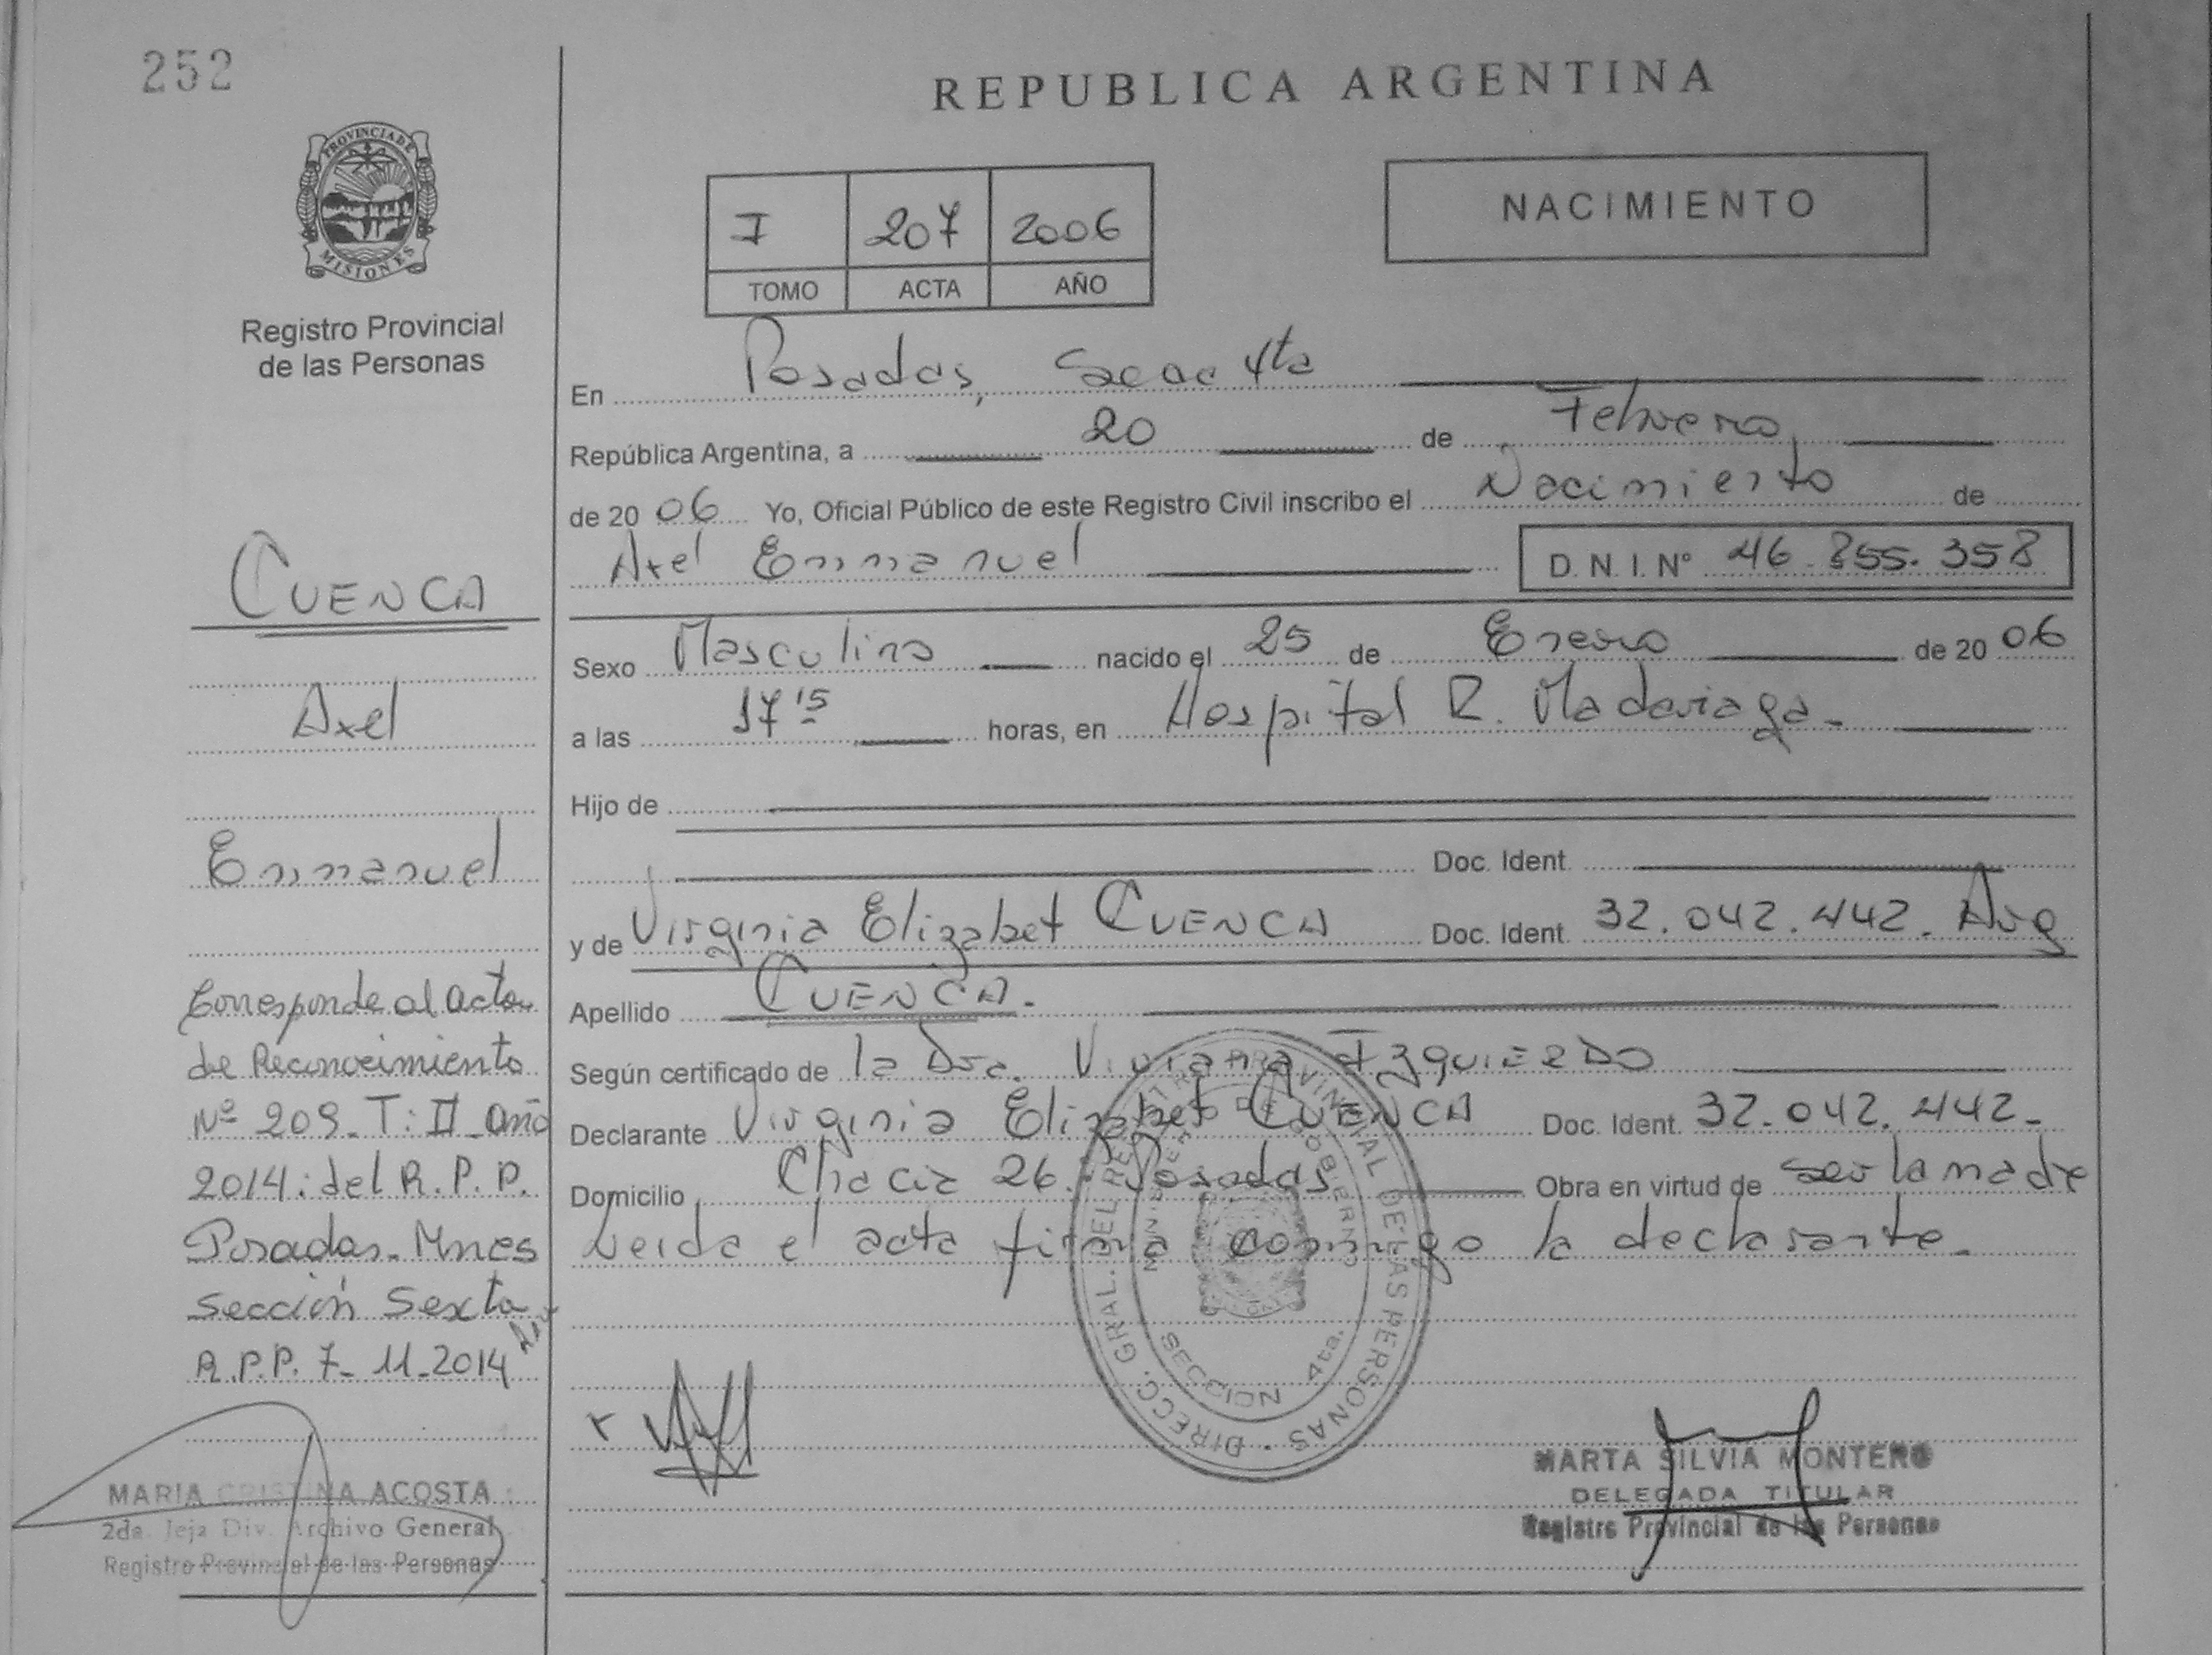 252
REPUBLICA ARGENTINA
PROVINCIA DE
MISIONES
Registro Provincial
de las Personas
I 207 2006
TOMO ACTA AÑO
NACIMIENTO
En Posadas, 4ta
República Argentina, a 20 de Febrero
de 20 06 Yo, Oficial Público de este Registro Civil inscribo el Nacimiento de
Axel Emmanuel D. N. I. Nº 46.855.358
Sexo Masculino nacido el 25 de Enero de 20 06
a las 17 15 horas, en Hospital R. Madariaga.
Hijo de
Doc. Ident.
y de Virginia Elizabet CUENCA Doc. Ident. 32.042.442. Arg
Apellido CUENCA.
Según certificado de la Dra. Viviana IZQUIERDO
Declarante Virginia Elizabet CUENCA Doc. Ident. 32.042.442.
Domicilio 26. Posadas Obra en virtud de ser la madre
Leida el acta firma conmigo la declarante.
CUENCA
Axel
Emmanuel
Corresponde al acta
de Reconocimiento
Nº 209_ T: II _ año
2014: del R.P.P.
Posadas_ Mnes
Sección Sexta
R.P.P. 7_ 11_2014
MARIA CRISTINA ACOSTA
2da. Jefa Div. Archivo General
Registro Provincial de las Personas
DIRECC. GRAL. DEL REGISTRO PROVINCIAL DE LAS PERSONAS
MINISTERIO DE GOBIERNO
SECCION 4ta.
MARTA SILVIA MONTERO
DELEGADA TITULAR
Registro Provincial de las Personas